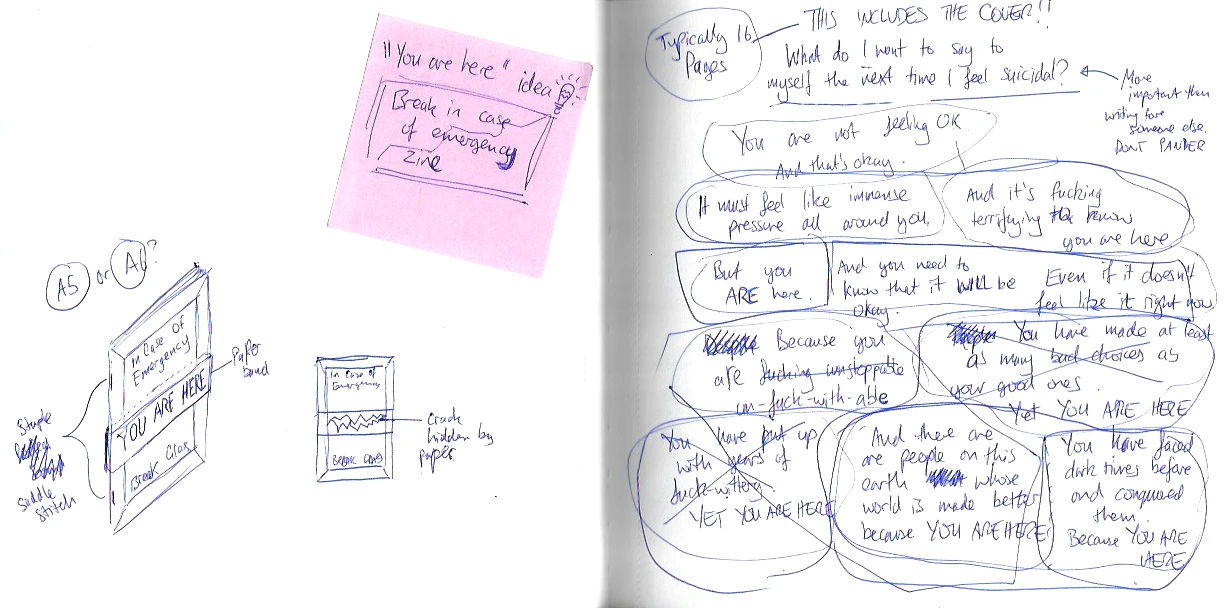 "You are here" idea
Break in case
of emergency
Zine
A5 or A6?
In Case of
Emergency
YOU ARE HERE
Break Glass
Paper
band
Simple
Saddle
Stitch
In Case of
Emergency
BREAK GLASS
Crack
hidden by
paper
Typically 16
Pages
THIS INCLUDES THE COVER!!
What do I want to say to
myself the next time I feel suicidal?
More
important than
writing for
someone else.
DON'T PANDER
You are not feeling OK
And that's okay.
It must feel like immense
pressure all around you,
And it's fucking
terrifying to know
you are here
But you
ARE here.
And you need to
know that it WILL be
okay.
Even if it doesn't
feel like it right now
Because you
are fucking unstoppable
un-fuck-with-able
You have made at least
as many bad choices as
your good ones.
Yet YOU ARE HERE
You have put up
with years of
fuck-wittery.
YET YOU ARE HERE
And there are
are people on this
earth whose
world is made better
because YOU ARE HERE
You have faced
dark times before
and conquered
them.
Because YOU ARE
HERE